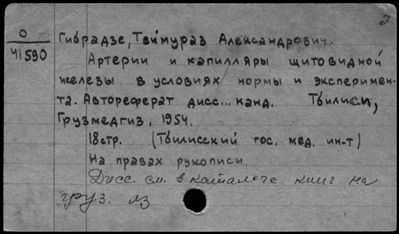 О
41590
Гибрадзе, Теймураз Александрович.
Артерии и капилляры щитовидной
железы в условиях нормы и эксперимен-
та. Автореферат дисс... канд. Тбилиси,
Грузмедгиз, 1954.
18стр. (Тбилисский гос. мед. ин-т)
На правах рукописи.
Дисс. см. в каталоге книг на
груз. яз